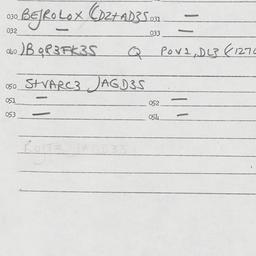 030 BEJROLOX (DZ+AD3S 031 –
032 – 033 –
040 )BQP3FK3S Q POV1,DL3 (127
050 S+VARC3 )AGD3S
051 – 052 –
053 – 054 –